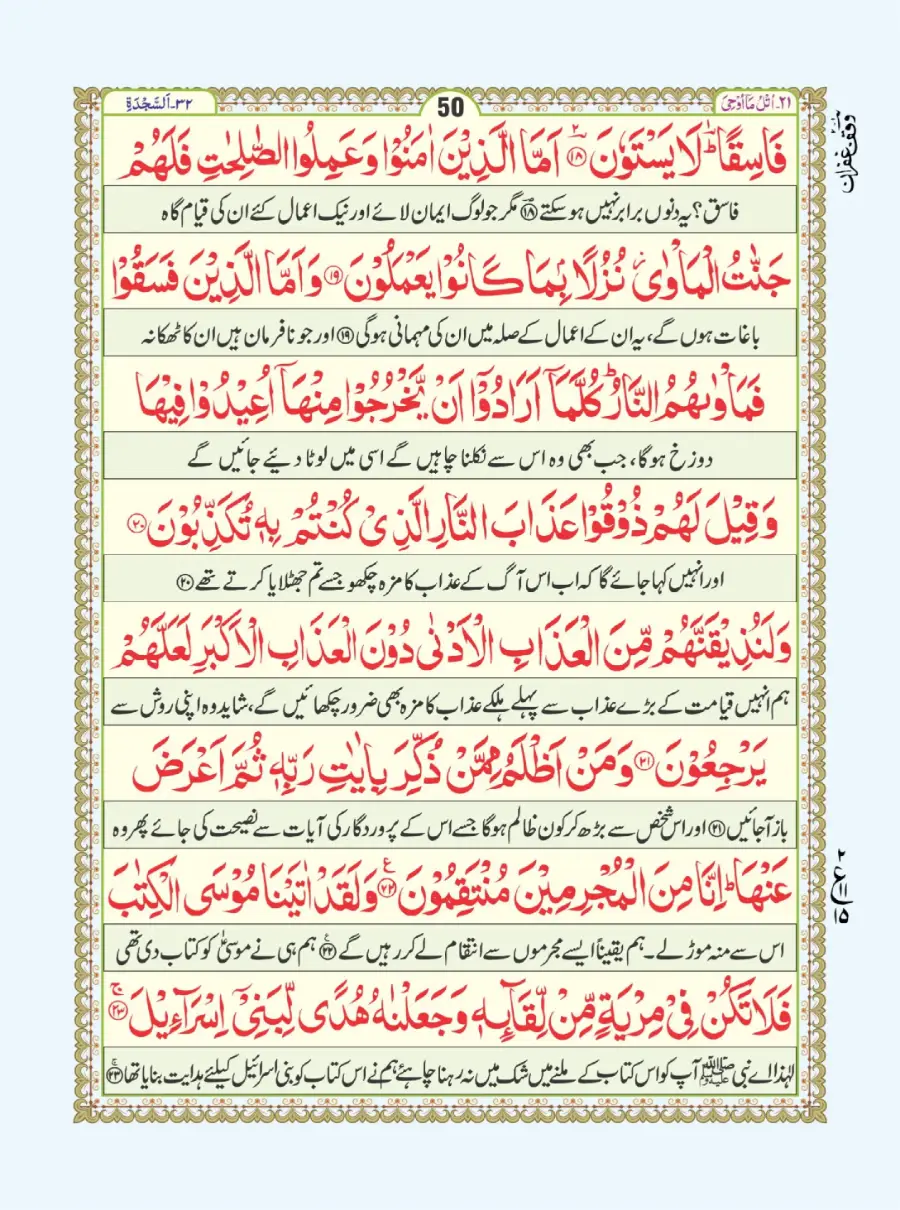 ۲۱۔ اُتْلُ مَآ اُوْحِیَ
50
۳۲۔ اَلسَّجْدَةِ
فَاسِقًا ؕ لَا یَسْتَوٗنَ ۱۸ اَمَّا الَّذِیْنَ اٰمَنُوْا وَعَمِلُوا الصّٰلِحٰتِ فَلَهُمْ
فاسق؟ یہ دونوں برابر نہیں ہو سکتے ۱۸ مگر جو لوگ ایمان لائے اور نیک اعمال کئے ان کی قیام گاہ
جَنّٰتُ الْمَاْوٰی ز نُزُلًۢا بِمَا كَانُوْا یَعْمَلُوْنَ ۱۹ وَاَمَّا الَّذِیْنَ فَسَقُوْا
باغات ہوں گے، یہ ان کے اعمال کے صلہ میں ان کی مہمانی ہوگی ۱۹ اور جو نافرمان ہیں ان کا ٹھکانہ
فَمَاْوٰىهُمُ النَّارُ ؕ كُلَّمَاۤ اَرَادُوْۤا اَنْ یَّخْرُجُوْا مِنْهَاۤ اُعِیْدُوْا فِیْهَا
دوزخ ہوگا، جب بھی وہ اس سے نکلنا چاہیں گے اسی میں لوٹا دیئے جائیں گے
وَقِیْلَ لَهُمْ ذُوْقُوْا عَذَابَ النَّارِ الَّذِیْ كُنْتُمْ بِهٖ تُكَذِّبُوْنَ ۲۰
اور انہیں کہا جائے گا کہ اب اس آگ کے عذاب کا مزہ چکھو جسے تم جھٹلایا کرتے تھے ۲۰
وَلَنُذِیْقَنَّهُمْ مِّنَ الْعَذَابِ الْاَدْنٰی دُوْنَ الْعَذَابِ الْاَكْبَرِ لَعَلَّهُمْ
ہم انہیں قیامت کے بڑے عذاب سے پہلے ہلکے عذاب کا مزہ بھی ضرور چکھائیں گے، شاید وہ اپنی روش سے
یَرْجِعُوْنَ ۲۱ وَمَنْ اَظْلَمُ مِمَّنْ ذُكِّرَ بِاٰیٰتِ رَبِّهٖ ثُمَّ اَعْرَضَ
باز آجائیں ۲۱ اور اس شخص سے بڑھ کر کون ظالم ہوگا جسے اس کے پروردگار کی آیات سے نصیحت کی جائے پھر وہ
عَنْهَا ؕ اِنَّا مِنَ الْمُجْرِمِیْنَ مُنْتَقِمُوْنَ ۲۲ ع وَلَقَدْ اٰتَیْنَا مُوْسَی الْكِتٰبَ
اس سے منہ موڑ لے۔ ہم یقیناً ایسے مجرموں سے انتقام لے کر رہیں گے ۲۲ ع ہم ہی نے موسیٰ کو کتاب دی تھی
فَلَا تَكُنْ فِیْ مِرْیَةٍ مِّنْ لِّقَآئِهٖ وَجَعَلْنٰهُ هُدًی لِّبَنِیْۤ اِسْرَآءِیْلَ ۲۳ ج
لہٰذا اے نبی ﷺ آپ کو اس کتاب کے ملنے میں شک میں نہ رہنا چاہئے ہم نے اس کتاب کو بنی اسرائیل کیلئے ہدایت بنایا تھا ۲۳ ج
وقف غفران